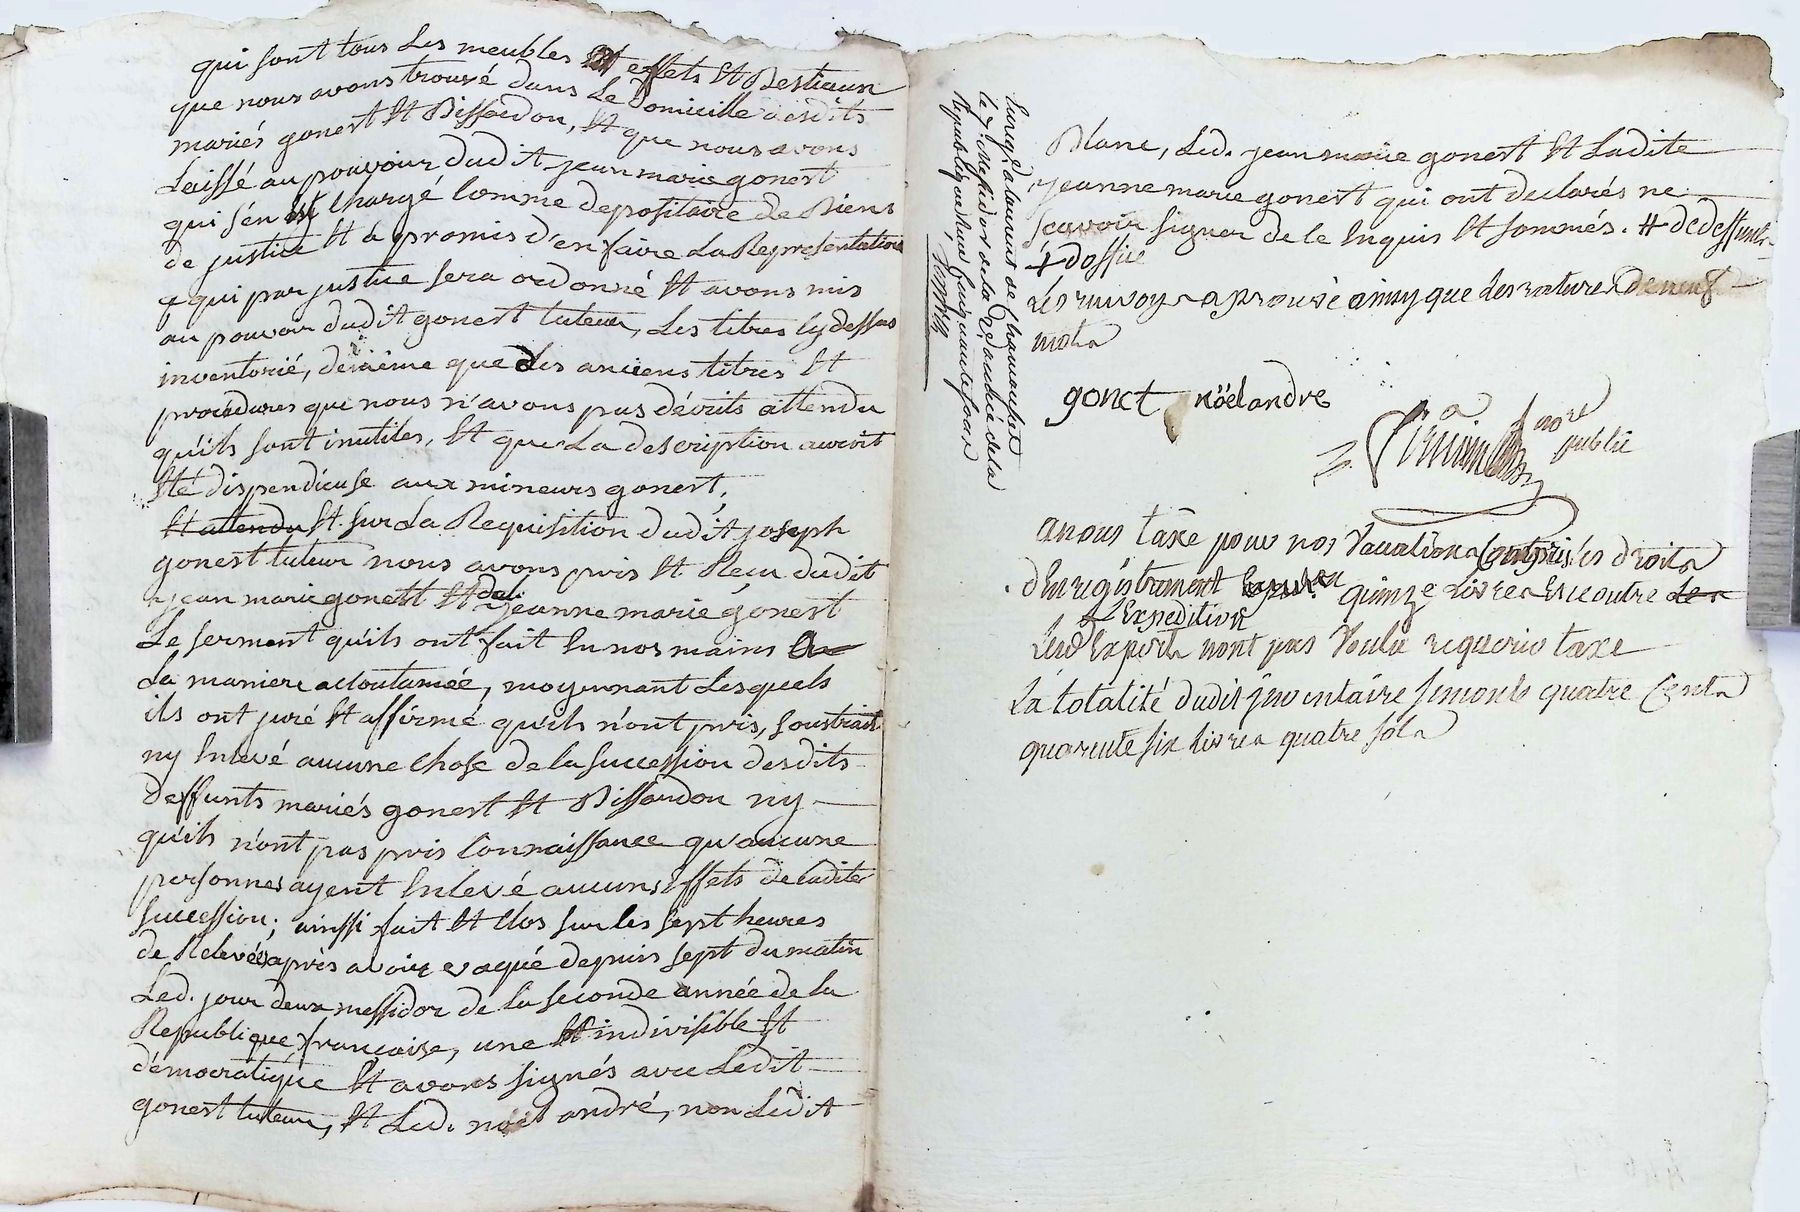 qui sont tous les meubles et effets et Bestiaux
que nous avons trouvé dans le domicille desdits
mariés gonest et Bissardon, et que nous avons
Laissé au pouvoir dudit jean marie gonest
qui s'en est Chargé Comme depositaire de Biens
de justice et a promis d'en faire La Representation
a qui par justice sera ordonné et avons mis
au pouvoir dudit gonest tuteur, Les titres cy dessus
inventorié, de même que des anciens titres et
procedures que nous n'avons pas décrits attendu
qu'ils sont inutiles, et que La description auroit
eté dispendieuse aux mineurs gonest,
et attendu et sur La Requisition dudit joseph
gonest tuteur nous avons pris et Reçu dudit
jean marie gonest et de lad. jeanne marie gonest
Le serment qu'ils ont fait En nos mains a
La maniere accoutumée, moyennant Lesquels
ils ont juré et affirmé qu'ils n'ont pris, soustrait
ny Enlevé aucune Chose de la succession desdits
deffunts mariés gonest et Bissardon ny
qu'ils n'ont pas pris Connaissance qu'aucune
personnes ayent Enlevé aucuns Effets de ladite
succession; ainssi fait et Clos sur les sept heures
de Relevée après avoir vaqué depuis sept du matin
Led. jour deux messidor de la seconde année de la
Republique française, une et indivisible et
démocratique et avons signés avec Ledit
gonest tuteur, et Led. noël andré, non Ledit
Blanc, Led. jean marie gonest et Ladite
jeanne marie gonest qui ont declarés ne
sçavoir signer de ce Enquis et sommés. # dedeffunts
+ dossie
Les renvoys aprouvé ainsy que les ratures de neuf
mots
gonet noël andre
nore public
Enregé a laurent de
le 7 Messidor de la 2e année de la
Republique Reçu Cinquante sous
a nous taxé pour nos Vacations Compris les droits
d'Enregistrement quinze Livres En outre des
L'Expedition
Lesd Experts n'ont pas Voulu requerir taxe
La totalité dudit jnventaire se monte quatre Cents
quarente six livres quatre sols